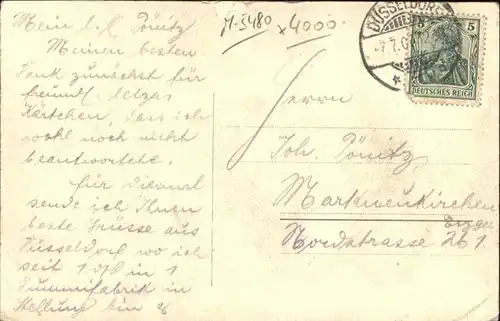 Mein l. H. Pönitz
Meinen besten
Dank zunächst für
freundl. letzes
Kärtchen, dass ich
wohl noch nicht
beantwortete.
für diesmal
sende ich Ihnen
beste Grüsse aus
Düsseldorf wo ich
seit 1 in 1
Gummifabrik in
Stellung bin
x 4000
DÜSSELDORF
7.7.0
5 5
DEUTSCHES REICH
Herrn
Joh. Pönitz,
Markneukirchen
Erzgeb.
Nordstrasse 261